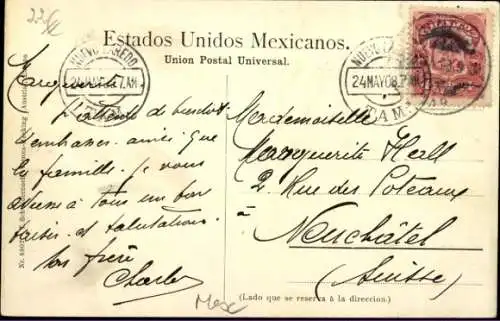 22€
Estados Unidos Mexicanos.
Union Postal Universal.
NUEVO LAREDO
24 MAY 08 7 AM
TAM.
NUEVO LAREDO
24 MAY 08
TAM.
Marguerite
J'attends de
embrasser ainsi que
la famille. Je vous
adresse à tous un bon
baiser et salutations
ton frère
Charles
Mademoiselle
Marguerite Hall
2. Rue des Poteaux
à
Neuchâtel
(Suisse)
Mex
(Lado que se reserva á la direccion.)